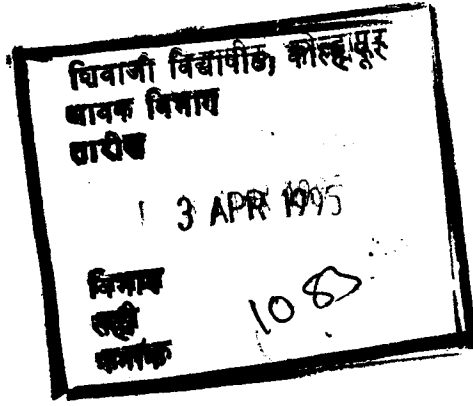 शिवाजी विद्यापीठ, कोल्हापूर
आवक विभाग
तारीख
3 APR 1995
विभाग
सही
क्रमांक